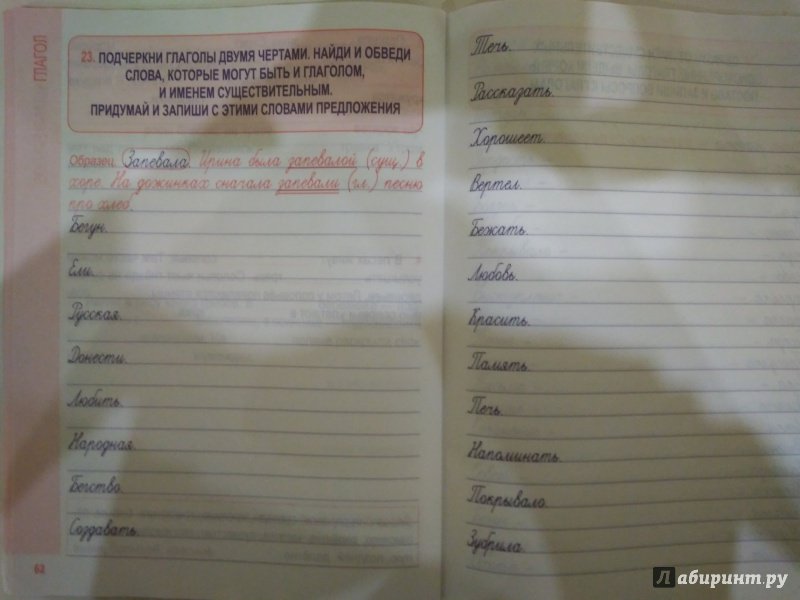 ГЛАГОЛ
23. ПОДЧЕРКНИ ГЛАГОЛЫ ДВУМЯ ЧЕРТАМИ. НАЙДИ И ОБВЕДИ
СЛОВА, КОТОРЫЕ МОГУТ БЫТЬ И ГЛАГОЛОМ,
И ИМЕНЕМ СУЩЕСТВИТЕЛЬНЫМ.
ПРИДУМАЙ И ЗАПИШИ С ЭТИМИ СЛОВАМИ ПРЕДЛОЖЕНИЯ
Образец. Запевала. Ирина была запевалой (сущ.) в
хоре. На дожинках сначала запевали (гл.) песню
про хлеб.
Бегун.
Ели.
Русская.
Донести.
Любить.
Народная.
Бегство.
Создавать.
62
Течь.
Рассказать.
Хорошеет.
Вертел.
Бежать.
Любовь.
Красить.
Память.
Печь.
Напоминать.
Покрывало.
Зубрила.
Лабиринт.ру